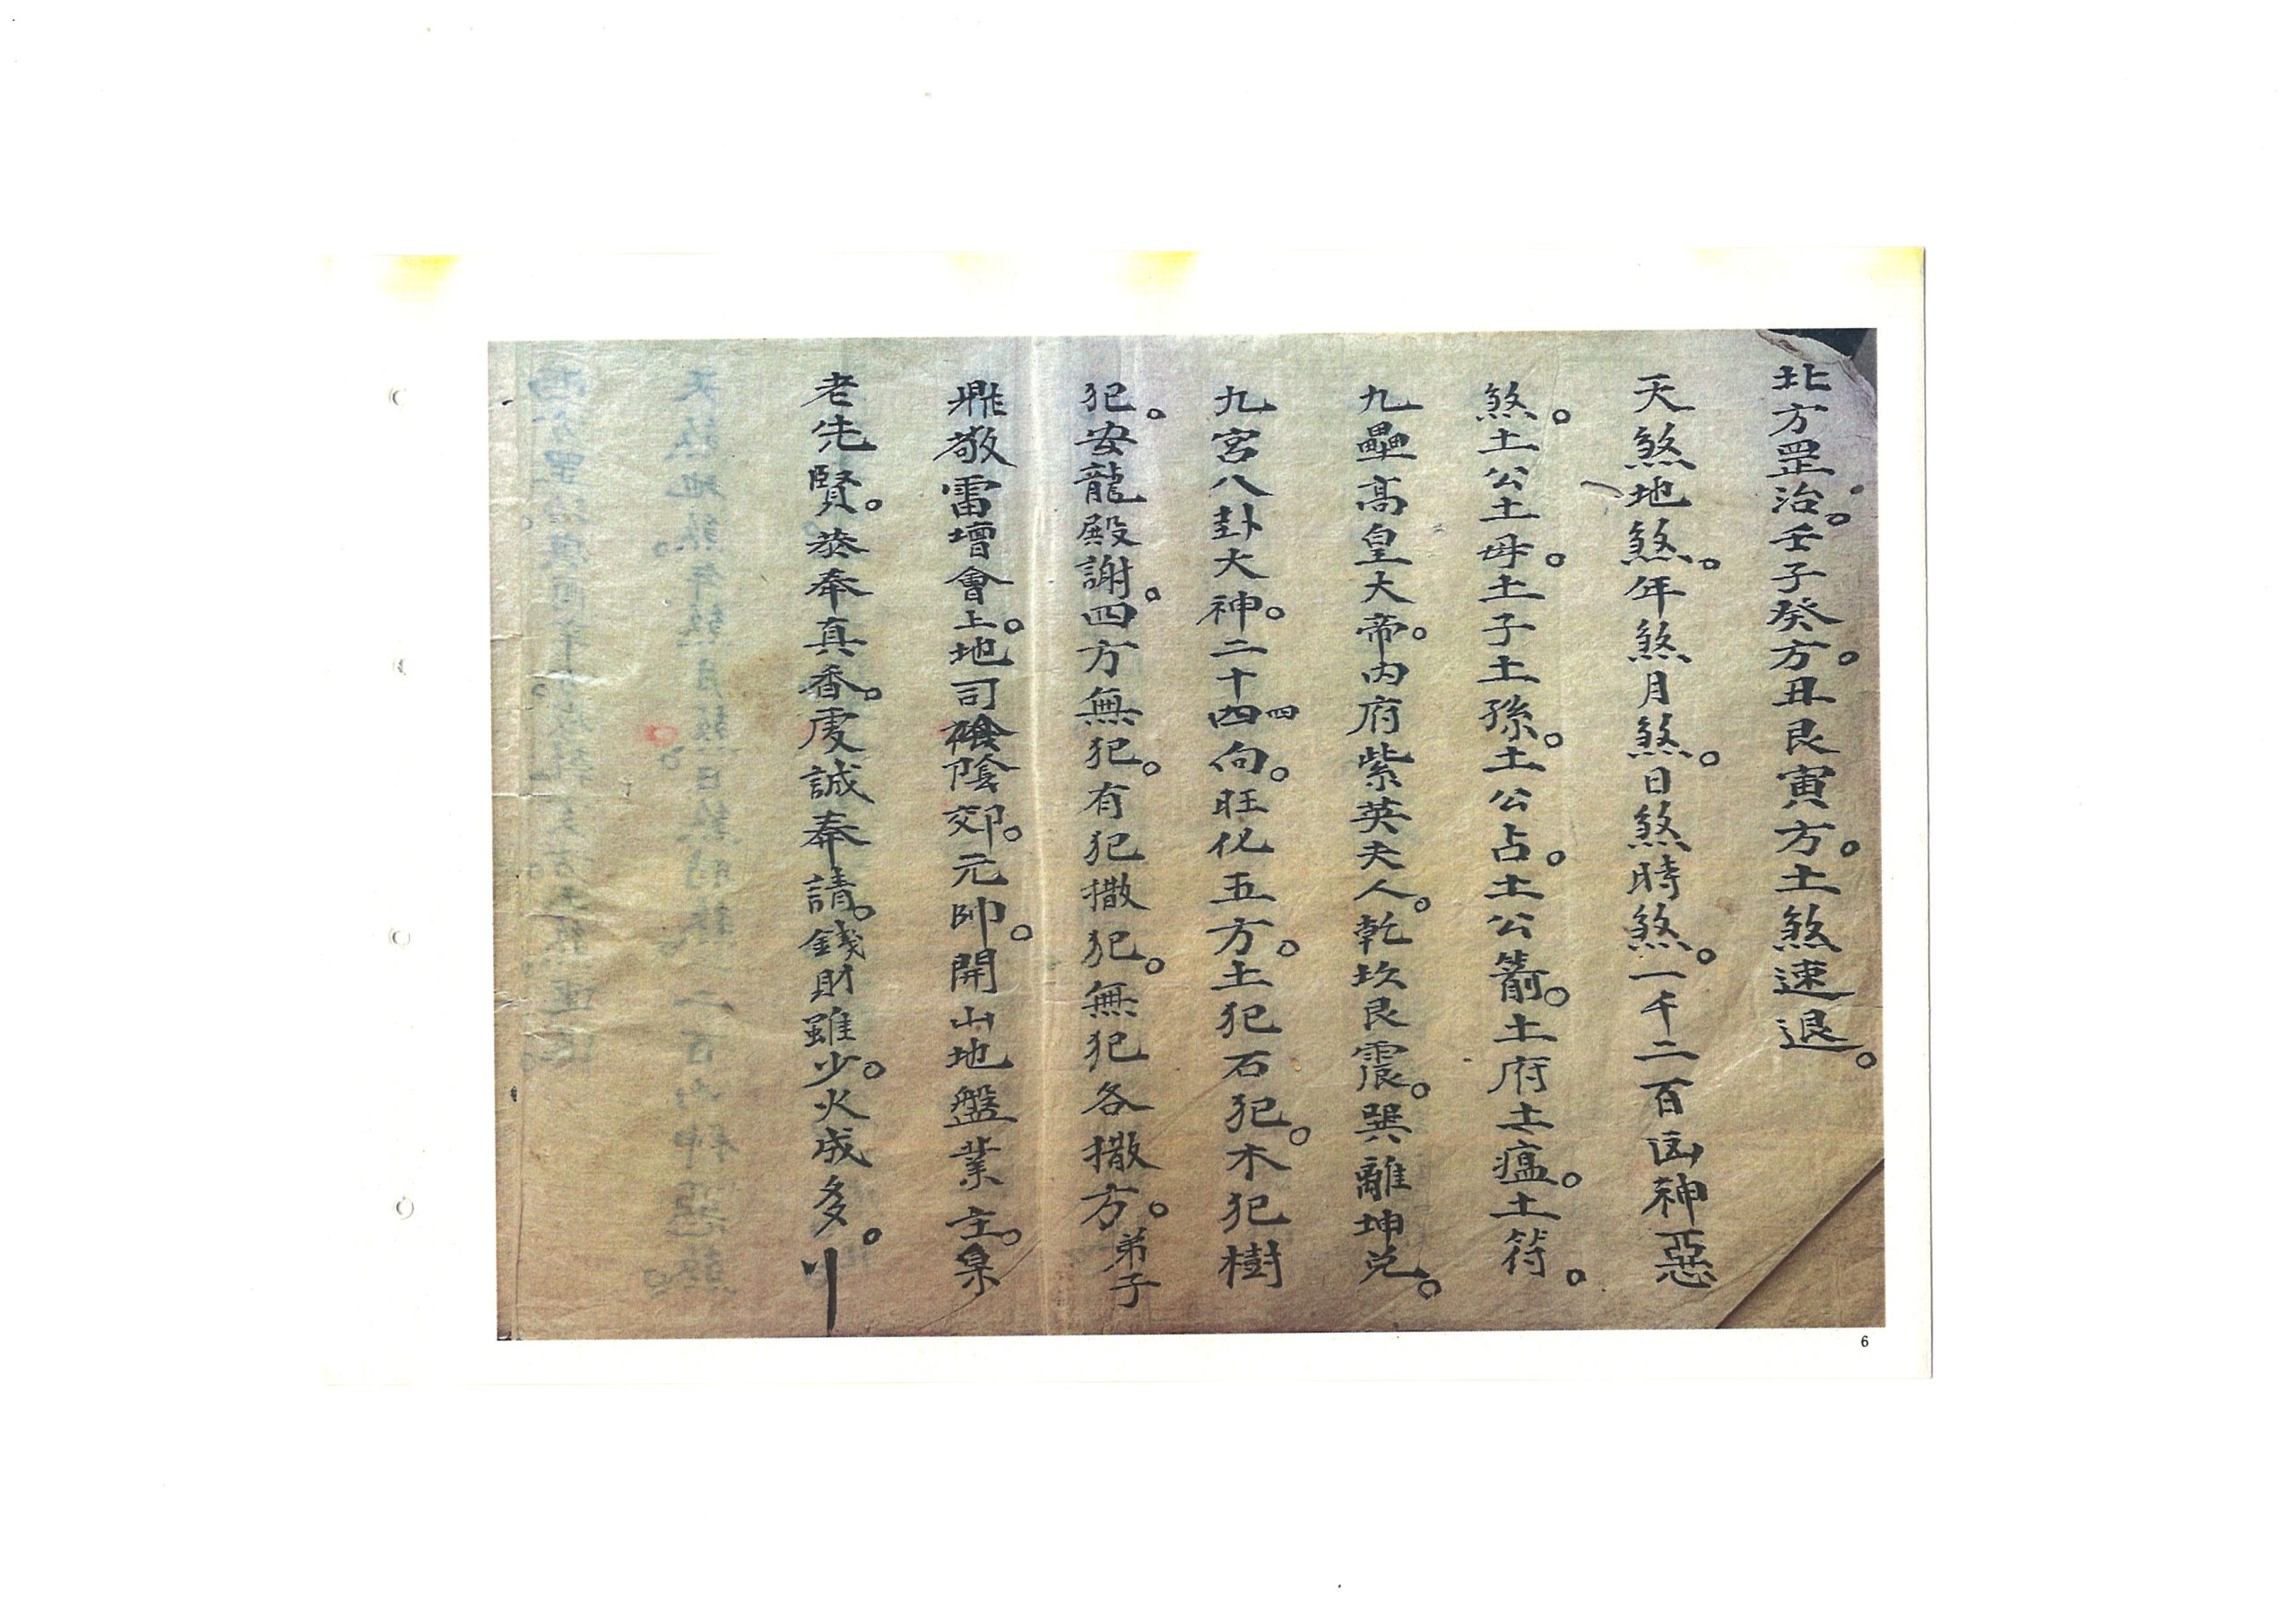 北方罡治。壬子癸方。丑艮寅方。土煞速退。
天煞地煞。年煞月煞。日煞時煞。一千二百凶神惡
煞。土公土母。土子土孫。土公占。土公箭。土府土瘟。土符。
九壘高皇大帝。内府紫英夫人。乾坎艮震。巽離坤兑。
九宮八卦大神。二十四四向。旺化五方。土犯石犯。木犯樹
犯。安龍殿謝。四方無犯。有犯撒犯。無犯各撒方。弟子
鼎敬雷壇會上。地司陰郊。元帥。開山地盤業主。
老先賢。恭奉真香。虔誠奉請。錢財雖少。火成多。
6